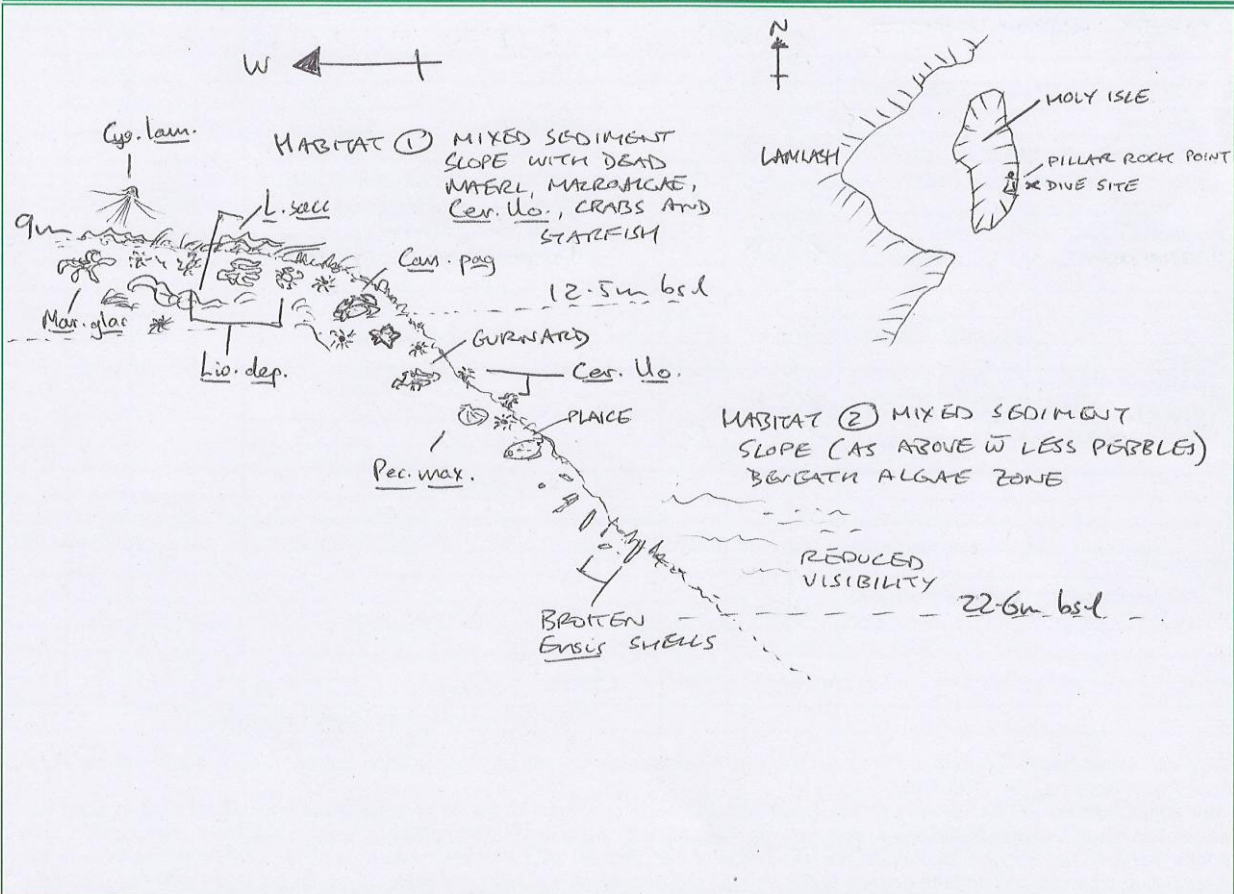 W
N
HOLY ISLE
LAMLASH
PILLAR ROCK POINT
DIVE SITE
HABITAT ① MIXED SEDIMENT
SLOPE WITH DEAD
MAERL, MACROALGAE,
Cer. llo., CRABS AND
STARFISH
L. sacc
9m
Can. pag
12.5m bsl
Mar. glac
Lio. dep.
GURNARD
Cer. llo.
PLAICE
Pec. max.
HABITAT ② MIXED SEDIMENT
SLOPE (AS ABOVE w̄ LESS PEBBLES)
BENEATH ALGAE ZONE
REDUCED
VISIBILITY
22.6m bsl
BROKEN
Ensis SHELLS